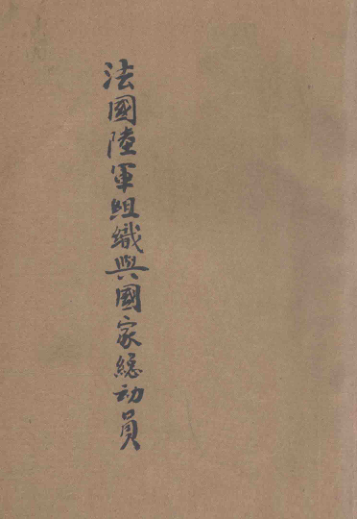 法國陸軍組織與國家總动員